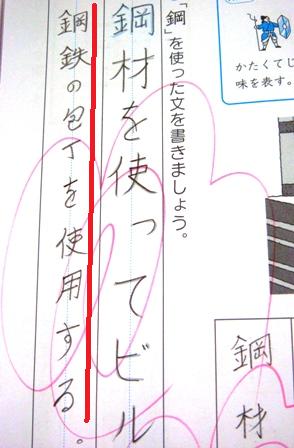 かたくてじ
味を表す。
「鋼」を使った文を書きましょう。
鋼材を使ってビル
鋼鉄の包丁を使用する。
鋼材